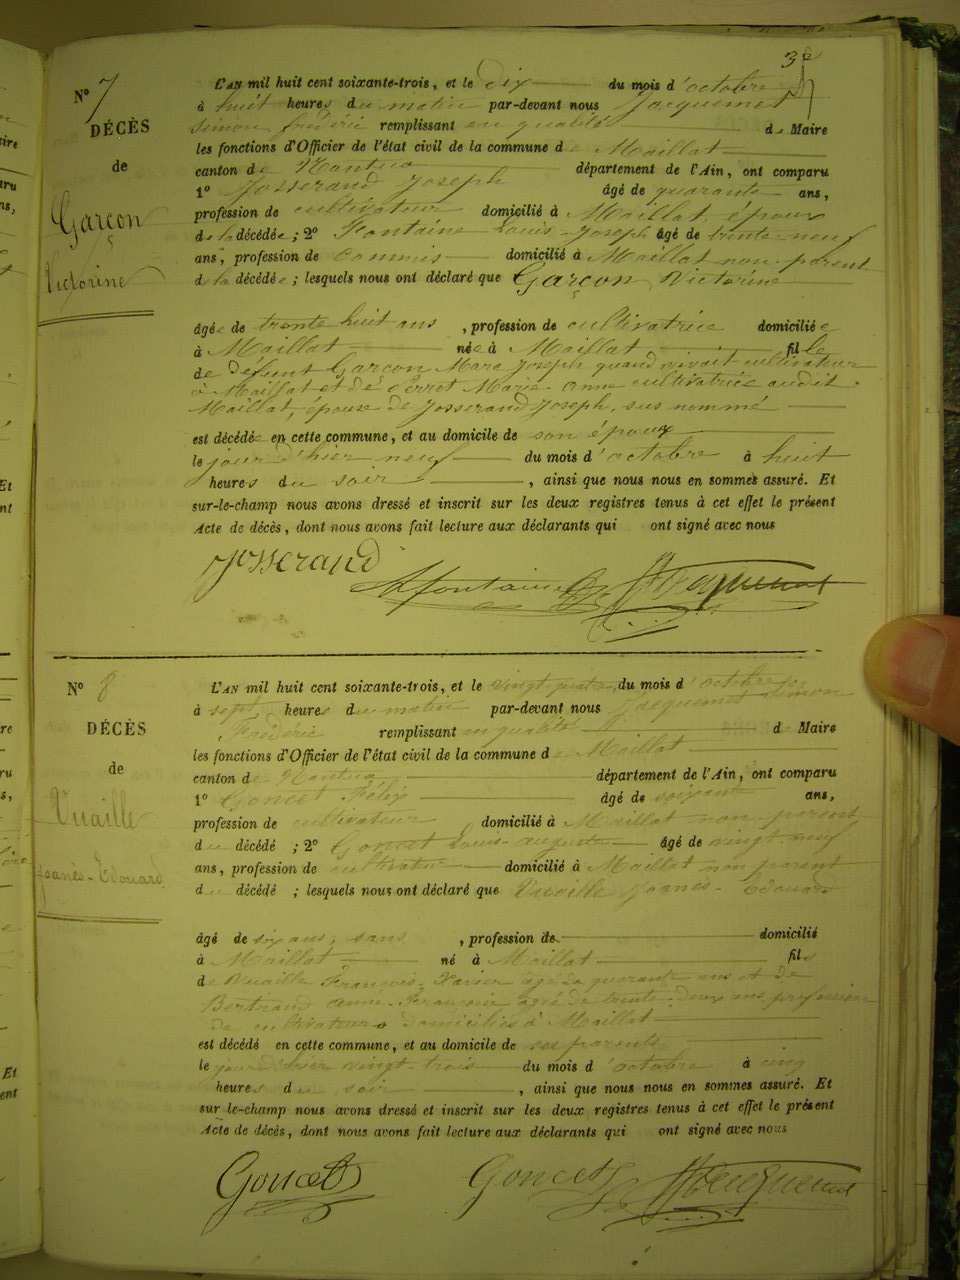 3e
N° 7
DÉCÈS
de
Garçon
Victorine
L'AN mil huit cent soixante-trois, et le dix du mois d'octobre
à huit heures du matin par-devant nous Jacquemet
Simon frédéric remplissant en qualité de Maire
les fonctions d'Officier de l'état civil de la commune de Maillat
canton de Nantua département de l'Ain, ont comparu
1° Josserand Joseph âgé de quarante ans,
profession de cultivateur domicilié à Maillat, époux
de la décédée ; 2° Fontaine Louis-Joseph âgé de trente-neuf
ans, profession de commis domicilié à Maillat non parent
de la décédée ; lesquels nous ont déclaré que Garçon Victorine
âgée de trente huit ans , profession de cultivatrice domiciliée
à Maillat née à Maillat fille
de défunt Garçon Marc Joseph quand vivait cultivateur
à Maillat et de Perret Marie-Anne cultivatrice audit
Maillat, épouse de Josserand Joseph, sus nommé
est décédée en cette commune, et au domicile de son époux
le jour d'hier neuf du mois d'octobre à huit
heures du soir , ainsi que nous nous en sommes assuré. Et
sur-le-champ nous avons dressé et inscrit sur les deux registres tenus à cet effet le présent
Acte de décès, dont nous avons fait lecture aux déclarants qui ont signé avec nous
Josserand
Lfontaine Jacquemet
N° 8
DÉCÈS
de
Vuaille
Joanès-Edouard
L'AN mil huit cent soixante-trois, et le vingt quatre du mois d'octobre
à sept heures du matin par-devant nous Jacquemet Simon
Frédéric remplissant en qualité de Maire
les fonctions d'Officier de l'état civil de la commune de Maillat
canton de Nantua département de l'Ain, ont comparu
1° Goncet Félix âgé de soixante ans,
profession de cultivateur domicilié à Maillat non parent
du décédé ; 2° Goncet Louis-auguste âgé de vingt-neuf
ans, profession de cultivateur domicilié à Maillat non parent
du décédé ; lesquels nous ont déclaré que Vuaille Joanès-Edouard
âgé de six ans, sans , profession de domicilié
à Maillat né à Maillat fils
de Vuaille François-Xavier âgé de quarante ans et de
Bertrand Anne-Françoise âgée de trente-deux ans profession
de cultivateurs domiciliés à Maillat
est décédé en cette commune, et au domicile de ses parents
le jour d'hier vingt-trois du mois d'octobre à cinq
heures du soir , ainsi que nous nous en sommes assuré. Et
sur le-champ nous avons dressé et inscrit sur les deux registres tenus à cet effet le présent
Acte de décès, dont nous avons fait lecture aux déclarants qui ont signé avec nous
Goncet Goncet Jacquemet